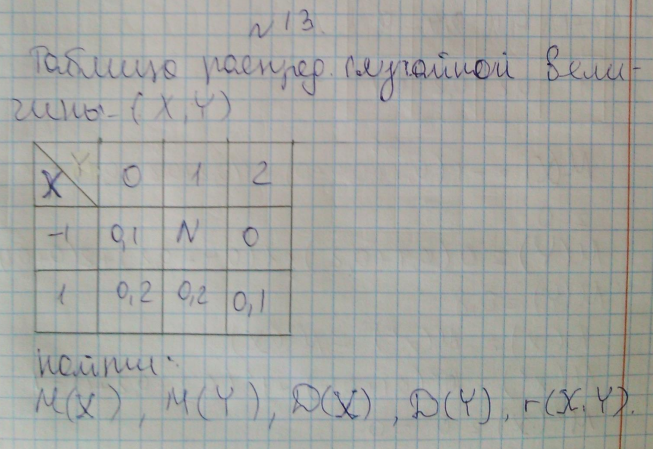 N 13.
Таблица распред. случайной вели-
чины - (X, Y)
X Y 0 1 2
-1 0,1 N 0
1 0,2 0,2 0,1
Найти:
M(X), M(Y), D(X), D(Y), r(X,Y).